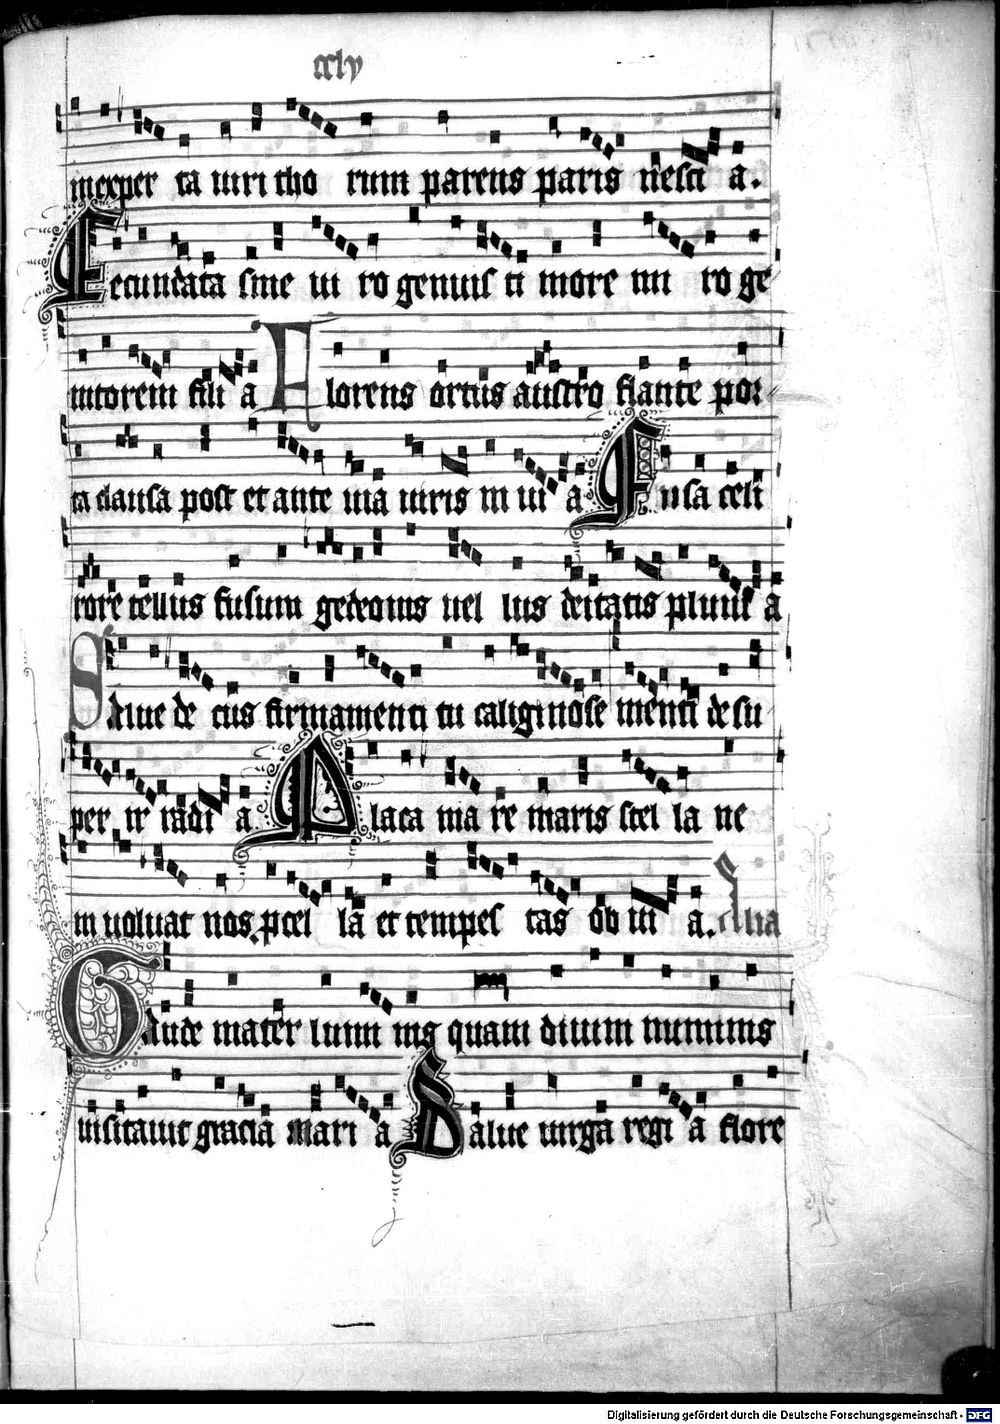 cclv
inexper ta uiri tho rum parens paris nesci a.
Fecundata sine ui ro genuis ti more mi ro ge
nitorem fili a Florens ortus austro flante por
ta clausa post et ante uia uiris in ui a Fusa celi
rore tellus fusum gedeonis uel lus deitatis pluui a
Salue de cus firmamenti tu caliginose menti desu
per ir radi a Placa ma re maris stel la ne
in uoluat nos pcel la et tempes tas ob ui a. Alia
Gaude mater lumi nis quam diuini numinis
uisitauit gracia Mari a Salue uirga regi a flore
Digitalisierung gefördert durch die Deutsche Forschungsgemeinschaft - DFG